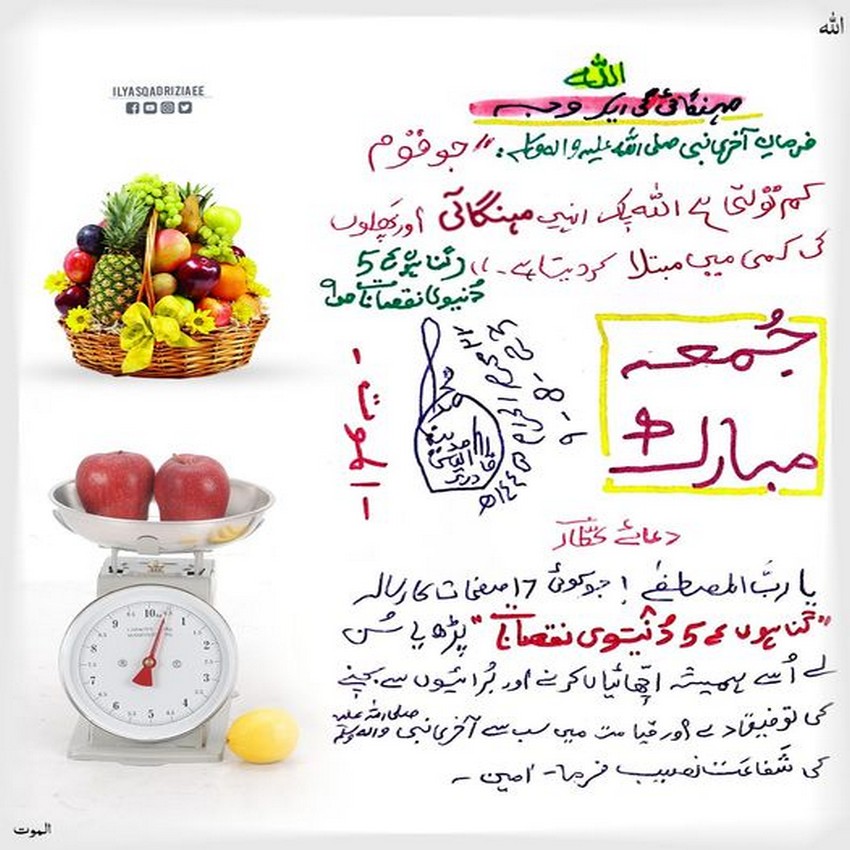 الله
ILYASQADRIZIAEE
الله
مہنگائی کی ایک وجہ
فرمانِ آخری نبی صلی اللہ علیہ واٰلہ وسلم: "جو قوم
کم تولتی ہے اللہ پاک انہیں مہنگائی اور پھلوں
کی کمی میں مبتلا کر دیتا ہے۔" (گناہوں کے 5
دُنیوی نقصانات ص9
جُمعہ
مبارک
الموت
دعائے عطّار
یا ربَّ المصطفےٰ! جو کوئی 17 صفحات کا رسالہ
"گناہوں کے 5 دُنیوی نقصانات" پڑھ یا سُن
لے اُسے ہمیشہ اچّھائیاں کرنے اور بُرائیوں سے بچنے
کی توفیق دے اور قیامت میں سب سے آخری نبی صلی اللہ علیہ واٰلہ وسلم
کی شَفاعَت نصیب فرما۔ اٰمین ۔
10 1 2 3 4 5 6 7 8 9
الموت